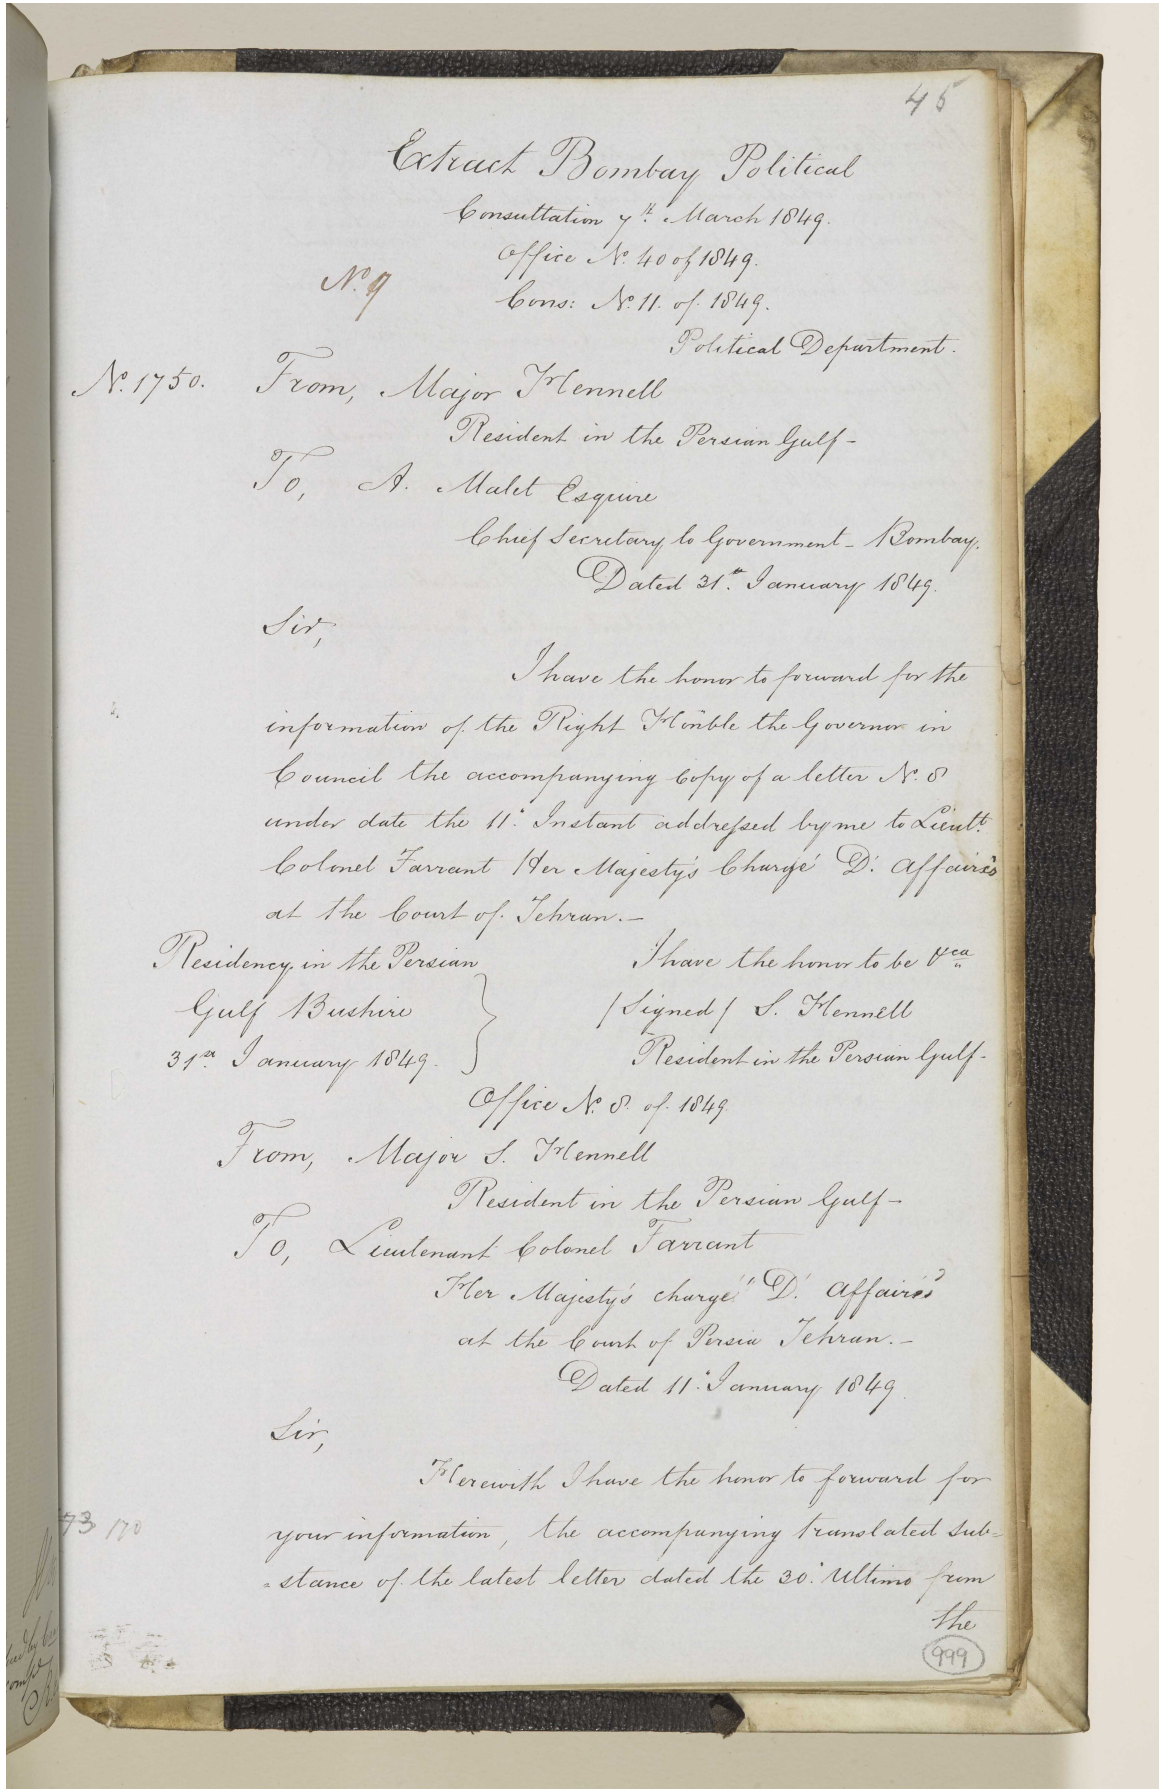 45
Extract Bombay Political
Consultation 7th March 1849.
Office No. 40 of 1849.
No. 9
Cons: No. 11. of 1849.
Political Department.
No. 1750. From, Major Hennell
Resident in the Persian Gulf-
To, A. Malet Esquire
Chief Secretary to Government - Bombay.
Dated 31st. January 1849.
Sir,
I have the honor to forward for the
information of the Right Honble the Governor in
Council the accompanying Copy of a letter No. 8
under date the 11. Instant addressed by me to Lieutt.
Colonel Farrant Her Majesty's Chargé D'. Affaires
at the Court of Tehran.-
Residency in the Persian
Gulf Bushire
31st. January 1849.
I have the honor to be &ca
/Signed/ S. Hennell
Resident in the Persian Gulf-
Office No. 8. of 1849.
From, Major S. Hennell
Resident in the Persian Gulf-
To, Lieutenant Colonel Farrant
Her Majesty's chargé D'. Affaires
at the Court of Persia Tehran.-
Dated 11. January 1849.
Sir,
Herewith I have the honor to forward for
your information, the accompanying translated sub=
=stance of the latest letter dated the 30. Ultimo from
the
73 170
999